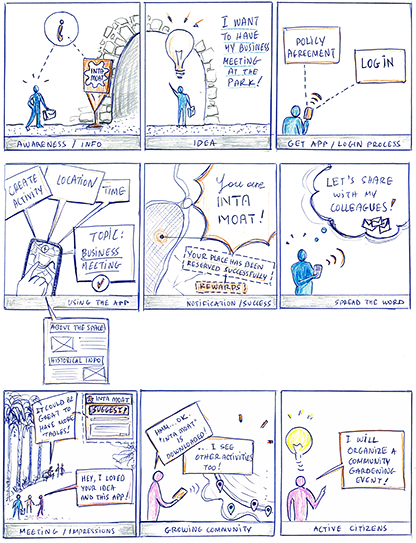 INTA
MOAT
AWARENESS / INFO
I WANT
TO HAVE
MY BUSINESS
MEETING
AT THE
PARK!
IDEA
POLICY
AGREEMENT
LOGIN
GET APP / LOGIN PROCESS
CREATE
ACTIVITY
LOCATION
TIME
TOPIC:
BUSINESS
MEETING
USING THE APP
ABOUT THE SPACE
HISTORICAL INFO
You are
INTA
MOAT!
YOUR PLACE HAS BEEN
RESERVED SUCCESSFULLY
REWARDS
NOTIFICATION/SUCCESS
LET'S SHARE
WITH MY
COLLEAGUES!
SPREAD THE WORD
INTA MOAT
SUGGEST!
IT COULD BE
GREAT TO
HAVE MORE
TABLES!
HEY, I LOVED
YOUR IDEA
AND THIS APP!
MEETING / IMPRESSIONS
HMM... OK.
"INTA MOAT" IS
DOWNLOADED!
... I SEE
OTHER ACTIVITIES
TOO!
GROWING COMMUNITY
I WILL
ORGANIZE A
COMMUNITY
GARDENING
EVENT!
ACTIVE CITIZENS